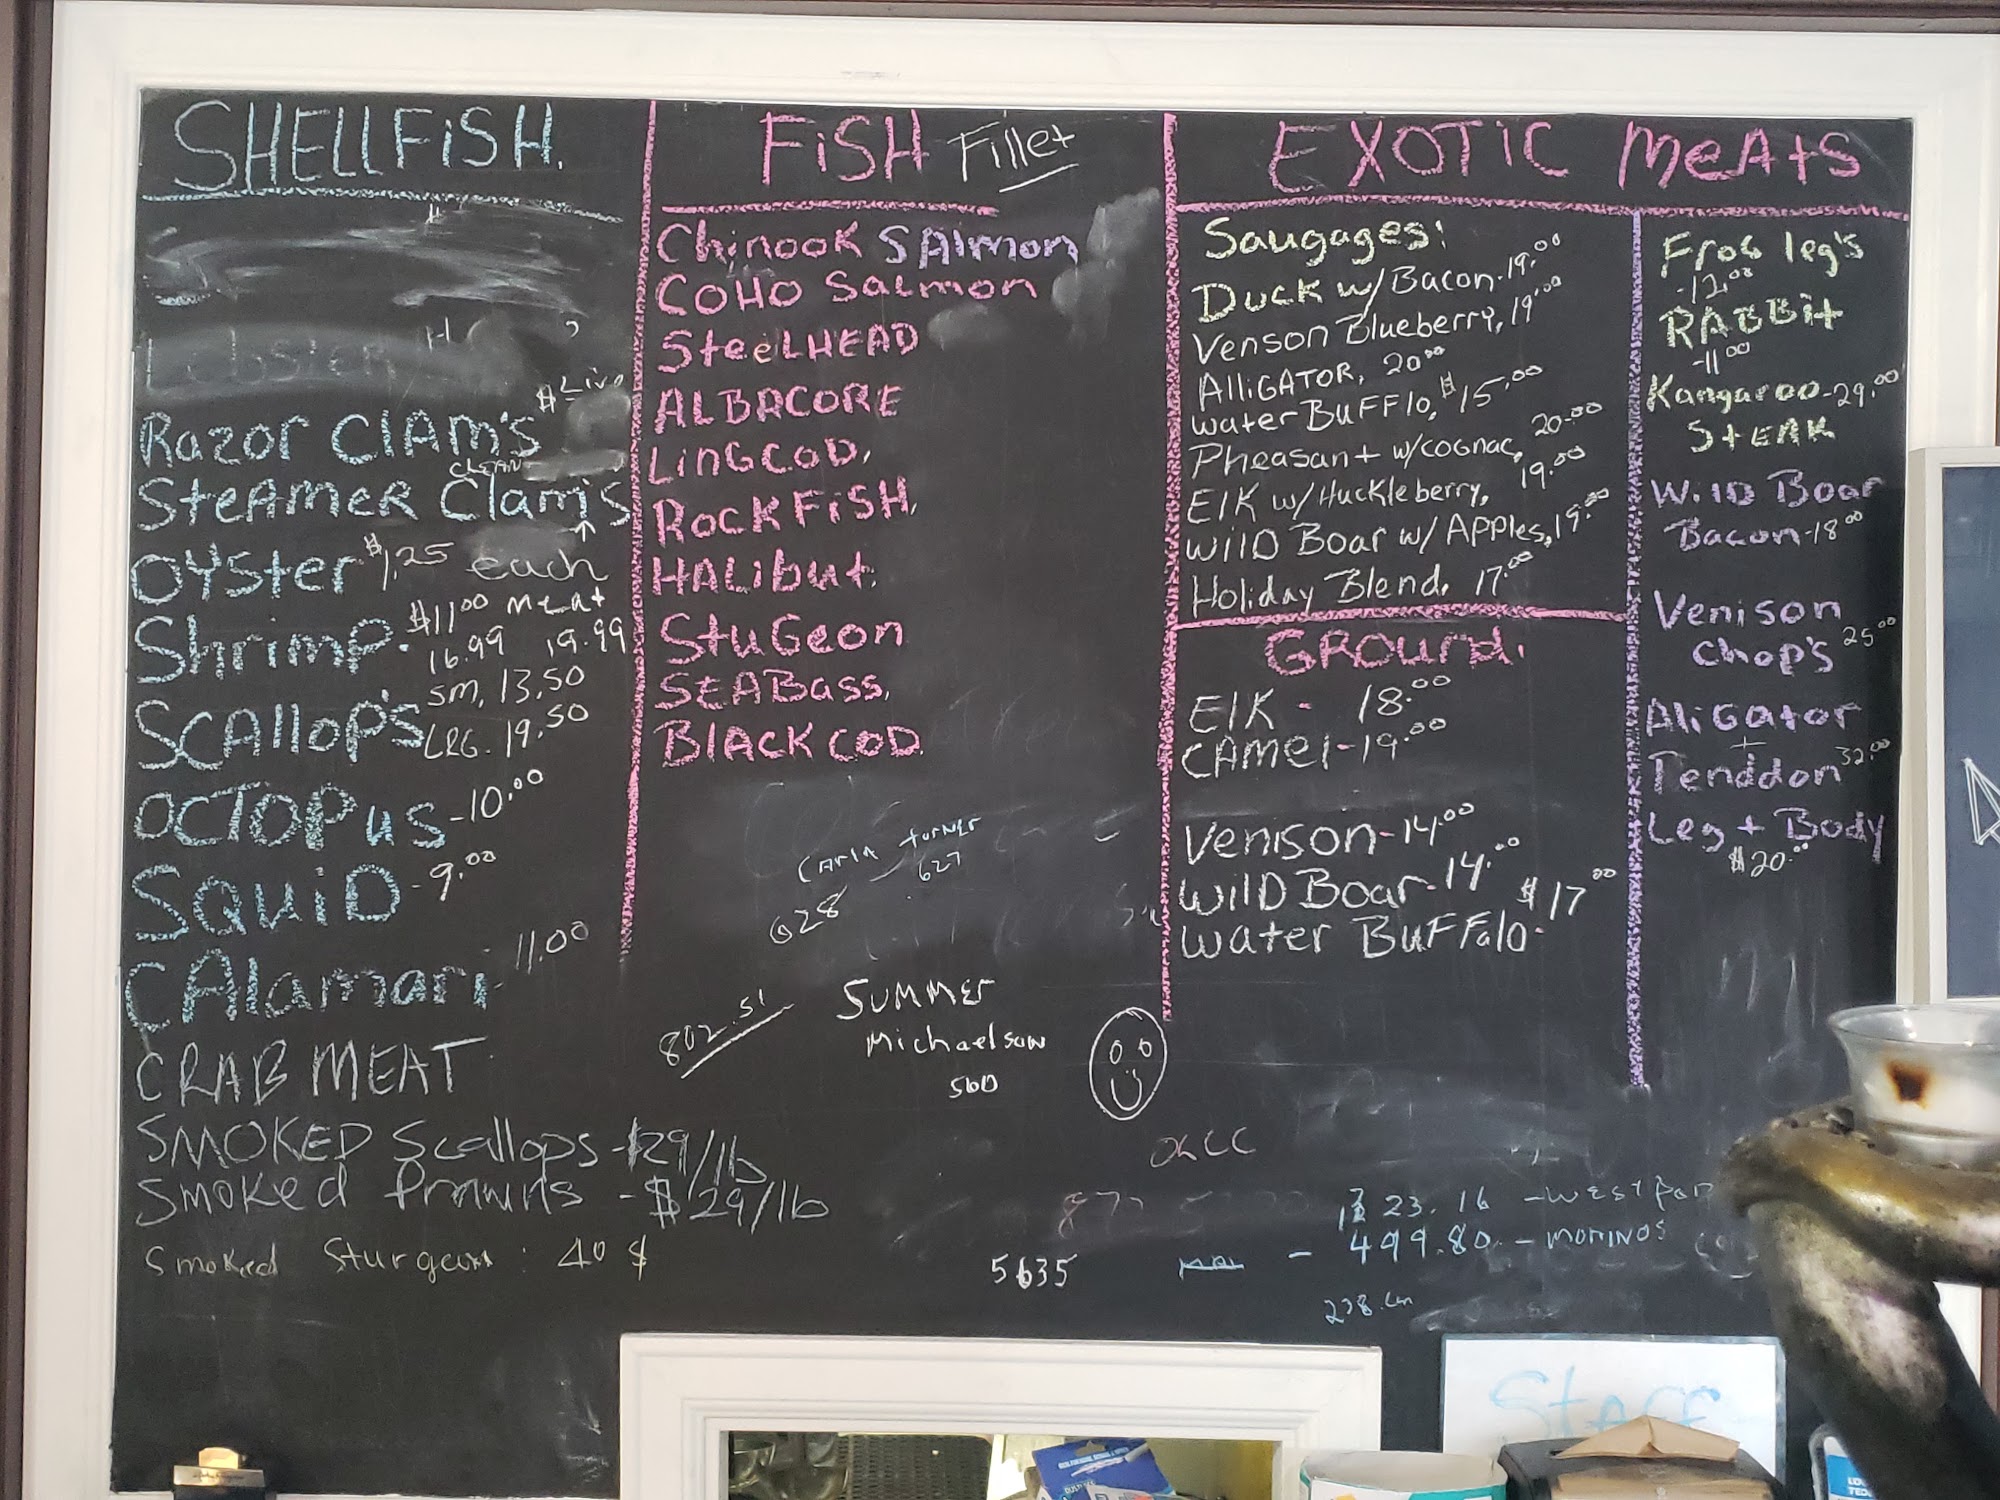 SHELLFiSH.
Lobster
$ Live
Razor ClAm's
clean
SteAmer Clam's
OYSter $1.25 each
Shrimp. $11.00 meat
16.99 19.99
SCAllop's sm, 13.50
LRG. 19.50
OCTOPus - 10.00
SQUiD - 9.00
CAlamari. 11.00
CRAB MEAT
SMOKED Scallops - $29/lb
Smoked Prawns - $29/lb
Smoked Sturgeon : 40 $
FiSH Fillet
Chinook SAlmon
COHO Salmon
SteelHEAD
ALBACORE
LinGCOD,
ROCKFiSH,
HALibut.
StuGeon
SEABass,
BlACK COD.
CArla turner
628 - 627
802.51
Summer
Michaelson
560
5635
EXOTIC MeAtS
Saugages:
Duck w/ Bacon - 19.00
Venson Blueberry, 19.00
AlliGATOR, 20.00
water BuFFlo, $15.00
Pheasant w/cognac, 20.00
ElK w/Huckleberry, 19.00
WilD Boar w/ Apples, 19.00
Holiday Blend. 17.00
GROund.
ElK - 18.00
CAmel - 19.00
Venison - 14.00
WilD Boar - 14.00
Water BuFFalo - $17.00
Frog leg's
-12.00
RABBit
-11.00
Kangaroo - 29.00
STEAK
WilD Boar
Bacon - 18.00
Venison
Chop's 25.00
AliGator
+
Tenddon 32.00
Leg + Body
$20.00
OLCC
23.16 - WESTPO
- 499.80 - MOMINOS
Staff